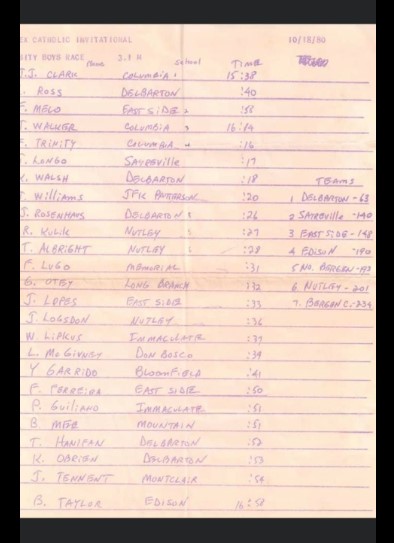 CATHOLIC INVITATIONAL 10/18/80
ITY BOYS RACE 3.1 M
Name School TIME
T.J. CLARK COLUMBIA 15:38
ROSS DELBARTON :40
F. MELO EAST SIDE :58
WAGNER COLUMBIA 16:14
TRINITY COLUMBIA :16
LONGO SAYREVILLE :17
WALSH DELBARTON :18 TEAMS
T. WILLIAMS JFK PATTERSON :20 1 DELBARTON - 68
J. ROSENHAUS DELBARTON :26 2 SAYREVILLE - 140
R. KULIK NUTLEY :27 3 EAST SIDE - 148
T. ALBRIGHT NUTLEY :28 4 EDISON - 190
F. LUGO MEMORIAL :31 5 NO. BERGEN - 197
G. UTEY LONG BRANCH :32 6 NUTLEY - 201
J. LOPES EAST SIDE :33 7. BERGEN C. - 234
J. LOGSDON NUTLEY :36
W. LIPKUS IMMACULATE :39
L. McGIVNEY DON BOSCO :39
Y GARRIDO BLOOMFIELD :41
F. FERREIRA EAST SIDE :50
P. GUILIANO IMMACULATE :51
B. MEE MOUNTAIN :51
T. HANIFAN DELBARTON :52
K. OBRIEN DELBARTON :53
J. TENNENT MONTCLAIR :54
B. TAYLOR EDISON 16:58